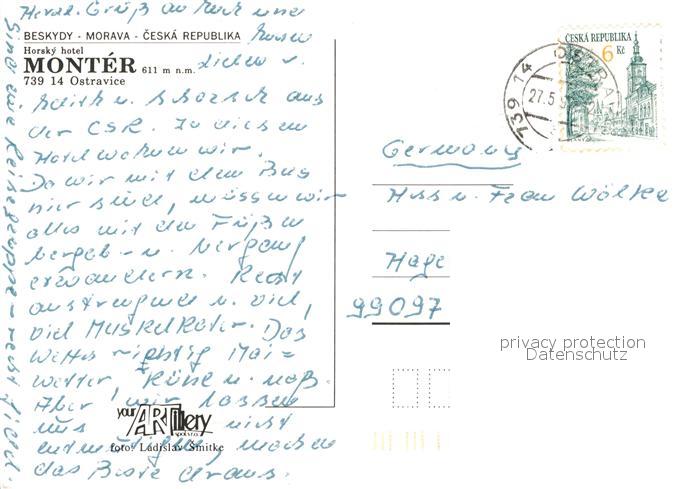 Herzl. Grüß an Euch und
BESKYDY - MORAVA - ČESKÁ REPUBLIKA
Horský hotel
MONTÉR 611 m n.m.
739 14 Ostravice
Lieben v.
Edith u. Schorsch aus
der CSR. In diesem
Hotel wohnen wir.
Da wir mit dem Bus
hier sind, müssen wir
alles mit den Füßen
bergab - u. bergauf
erwandern. Recht
anstrengend u. viel,
viel Muskelkater. Das
Wetter richtig Mai=
wetter, Kühl u. naß.
Aber wir lassen
uns nicht
entmutigen, machen
das Beste draus.
Sind eine Reisegruppe - recht
your ARTillery
spol. s r.o.
foto: Ladislav Šmitke
ČESKÁ REPUBLIKA
6 Kč
739 14
27.5.9
Germany
Herr u. Frau Wölke
Hage
99097
privacy protection
Datenschutz